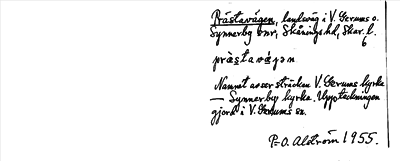 Prästavägen, landsväg i V. Gerums o.
Synnerby snr, Skånings hd, Skar. l.
6
pràstavä́gən
Namnet avser sträckan V. Gerums kyrka
— Synnerby kyrka. Uppteckningen
gjord i V. Gerums sn.
P-O. Alström 1955.